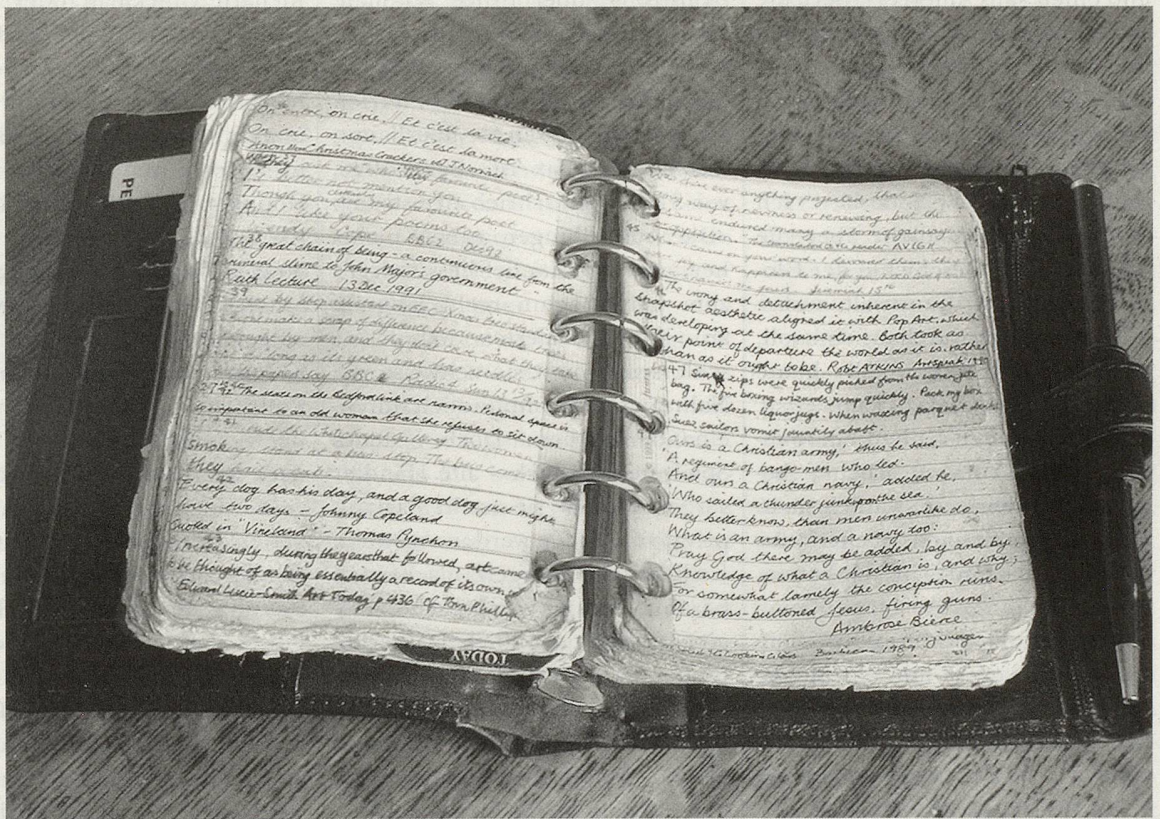 On entre, on crie, // Et c'est la vie.
On crie, on sort, // Et c'est la mort.
Anon Christmas Crackers ed J J Norwich
They ask me who's favourite poet
I'd better not mention you
Though you are my favourite poet
And I like your poems too
Wendy Cope BBC2 Dec 92
38
The great chain of being - a continuous line from the
mineral slime to John Major's government
Reith Lecture 13 Dec 1991
39
by shop assistant on EEC Xmas tree standards
make a scrap of difference because most trees
bought by men, and they don't care what they take
long as its green and has needles.
say BBC Radio 4 Sun 13
40
The seats on the Bedford link are narrow. Personal space is
so important to an old woman that she refuses to sit down
41
Outside the Whitechapel Gallery. Two women
smoking stand at a bus-stop. The bus came
they hail a cab.
42
'Every dog has his day, and a good dog just might
have two days - Johnny Copeland
Quoted in 'Vineland' - Thomas Pynchon
43
Increasingly, during the years that followed, art came
to be thought of as being essentially a record of its own
Edward Lucie-Smith Art Today p 436 of Tom Phillips
TODAY
PE
ever anything projected, that
any way of newness or renewing, but the
same endured many a storm of gainsaying
The translators to the reader AV 1611
45
your word. I devoured them, they
joy and happiness to me, for you
Jeremiah 15
The irony and detachment inherent in the
snapshot aesthetic aligned it with Pop Art, which
was developing at the same time. Both took as
their point of departure the world as it is, rather
than as it ought to be. Robt ATKINS Artspeak 1990
47 Sixty zips were quickly picked from the woven jute
bag. The five boxing wizards jump quickly. Pack my box
with five dozen liquor jugs. When waxing parquet decks
Suez sailors vomit jauntily abaft.
Ours is a Christian army,' thus he said,
'A regiment of bango-men who led.
'And ours a Christian navy,' added he,
'Who sailed a thunder junk upon the sea.'
They better know, than men unwarlike do,
What is an army, and a navy too:
Pray God there may be added, by and by
Knowledge of what a Christian is, and why;
For somewhat lamely the conception runs
Of a brass-buttoned Jesus, firing guns.
Ambrose Bierce
Barbican 1989